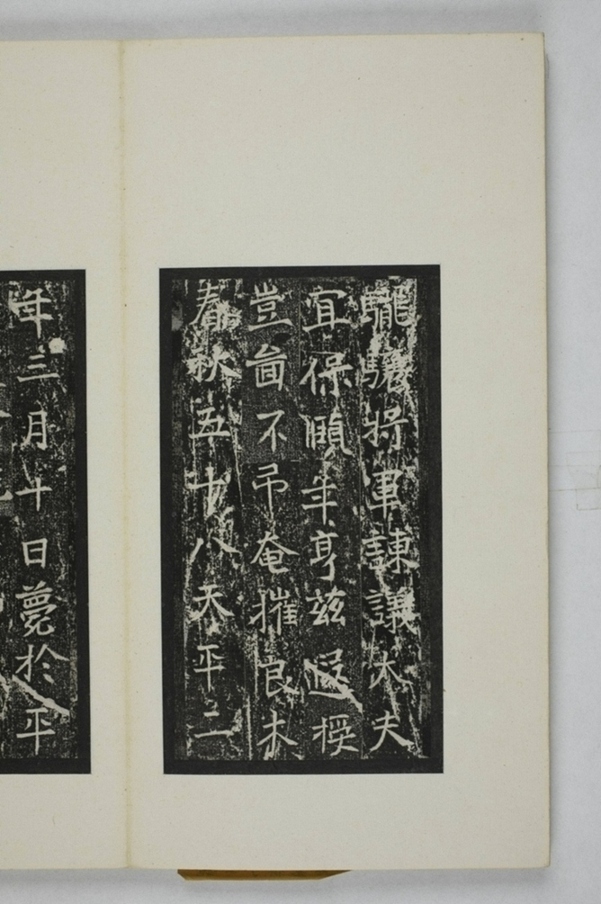 龍驤將軍諫議大夫
宜保頤年享茲遐
豈啚不弔奄摧良木
春秋五十八天平二
年三月十日薨於平